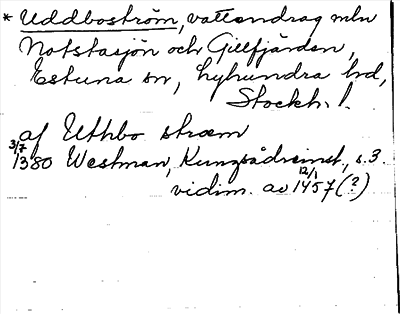 * Uddboström, vattendrag mln
Notstasjön och Gillfjärden,
Estuna sn, Lyhundra hd,
Stockh. l.
af Uthbo strœm
3/7 1380 Westman, Kungsådreinst., s. 3.
vidim. av 12/1 1457 (?)